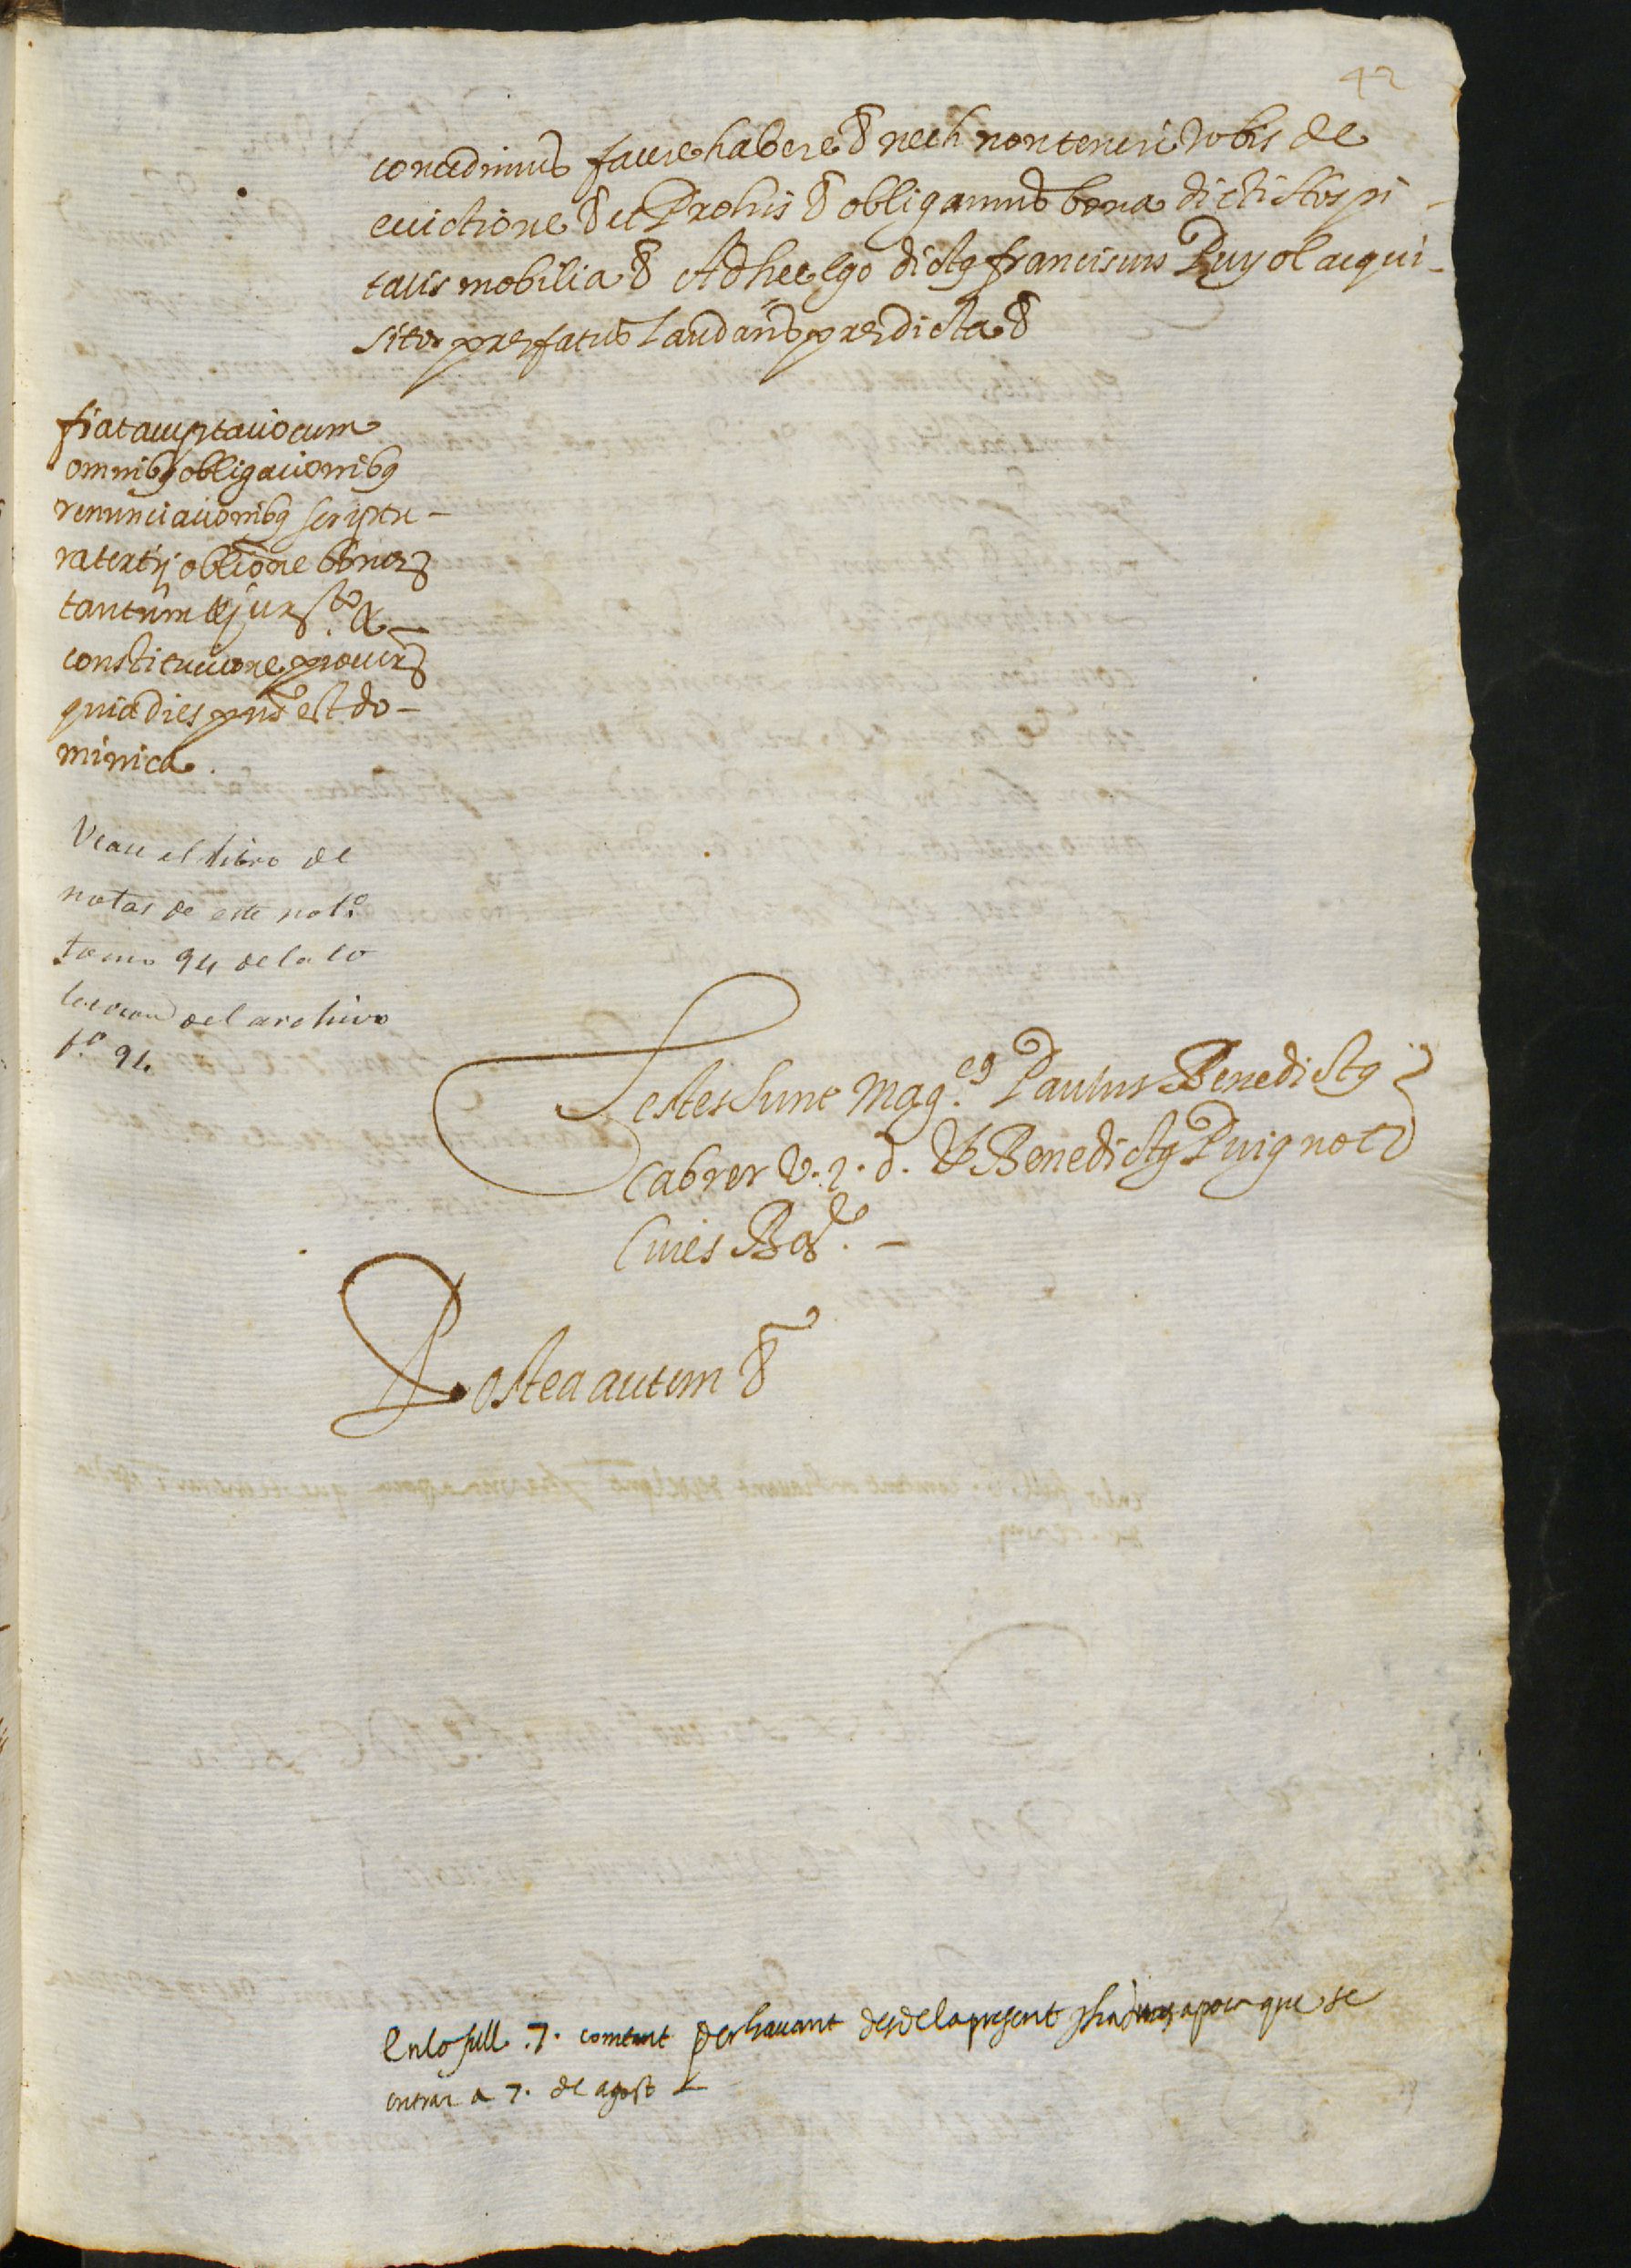 42
concedimus facere habere & nech non teneri vobis de
euictione & et Prohis & obligamus bona dicti Hospi-
talis mobilia & Ad hec ego dictus franciscus Puyol acqui-
sitor prefatus Laudans predicta &
fiat acceptacio cum
omnibus obligacionibus
renunciacionibus scriptu-
ra tertij oblione bonor
tantum et jur.to &-
constitucione procur
quia dies pns est do-
minica.
Vease el libro de
notas de este not.o
tomo 94 de la co
leccion del archivo
f.o 94
Testes sunt Mag.cus Paulus Benedictus
Cabrer V. J. d. & Benedictus Puig not
Ciues Bar.e -
Postea autem &
En lo full .7. contant per hauant des de la present apoca que se
entrar a 7. de agost